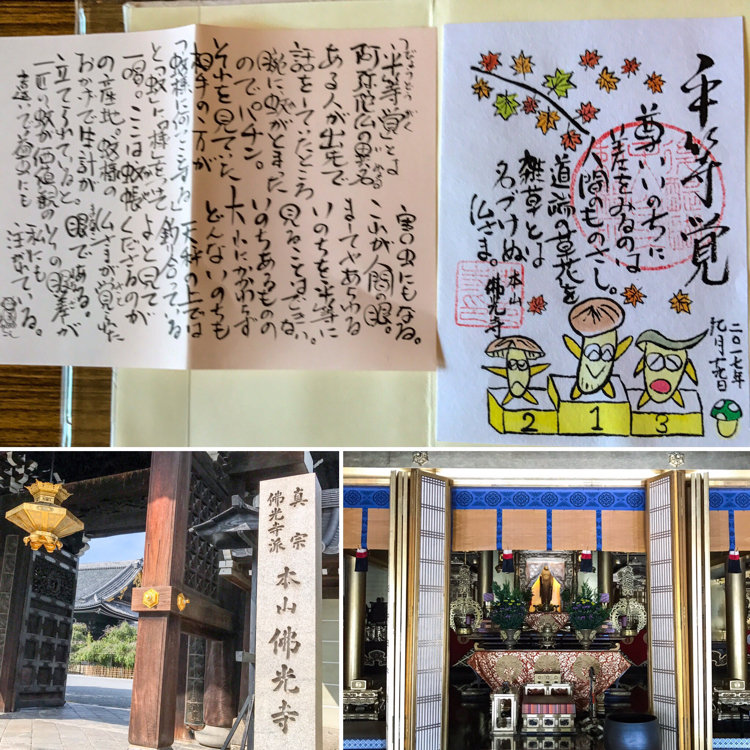 平等覚
尊いいのちに
差をみるのは
人間のものさし。
道端の草花を
雑草とは
名づけぬ
仏さま。
本山
佛光寺
二〇一七年
2
1
3
びょうどうがく
「平等覚」とは
阿弥陀仏の異名。
ある人が出先で
話をしていたところ
腕に蚊がとまった
ので、パチン。
それを見ていた
相手の方が
「蚊様に何ということを」
と「蚊」に「様」をつけて
一喝。ここは蚊帳
の産地。蚊様の
おかげで生計が
立てられていると。
一匹の蚊が価値観の
害虫にもなる。
これが人間の眼。
いのちを平等に
見ることはできない。
いのちあるもの
大小にかかわらず
どんないのちも
天秤の上では
釣り合っている
よと見て
くださるのが
仏さまが覚られた
眼である。
その眼差が
私にも
注がれている。
真宗
佛光寺派
本山佛光寺